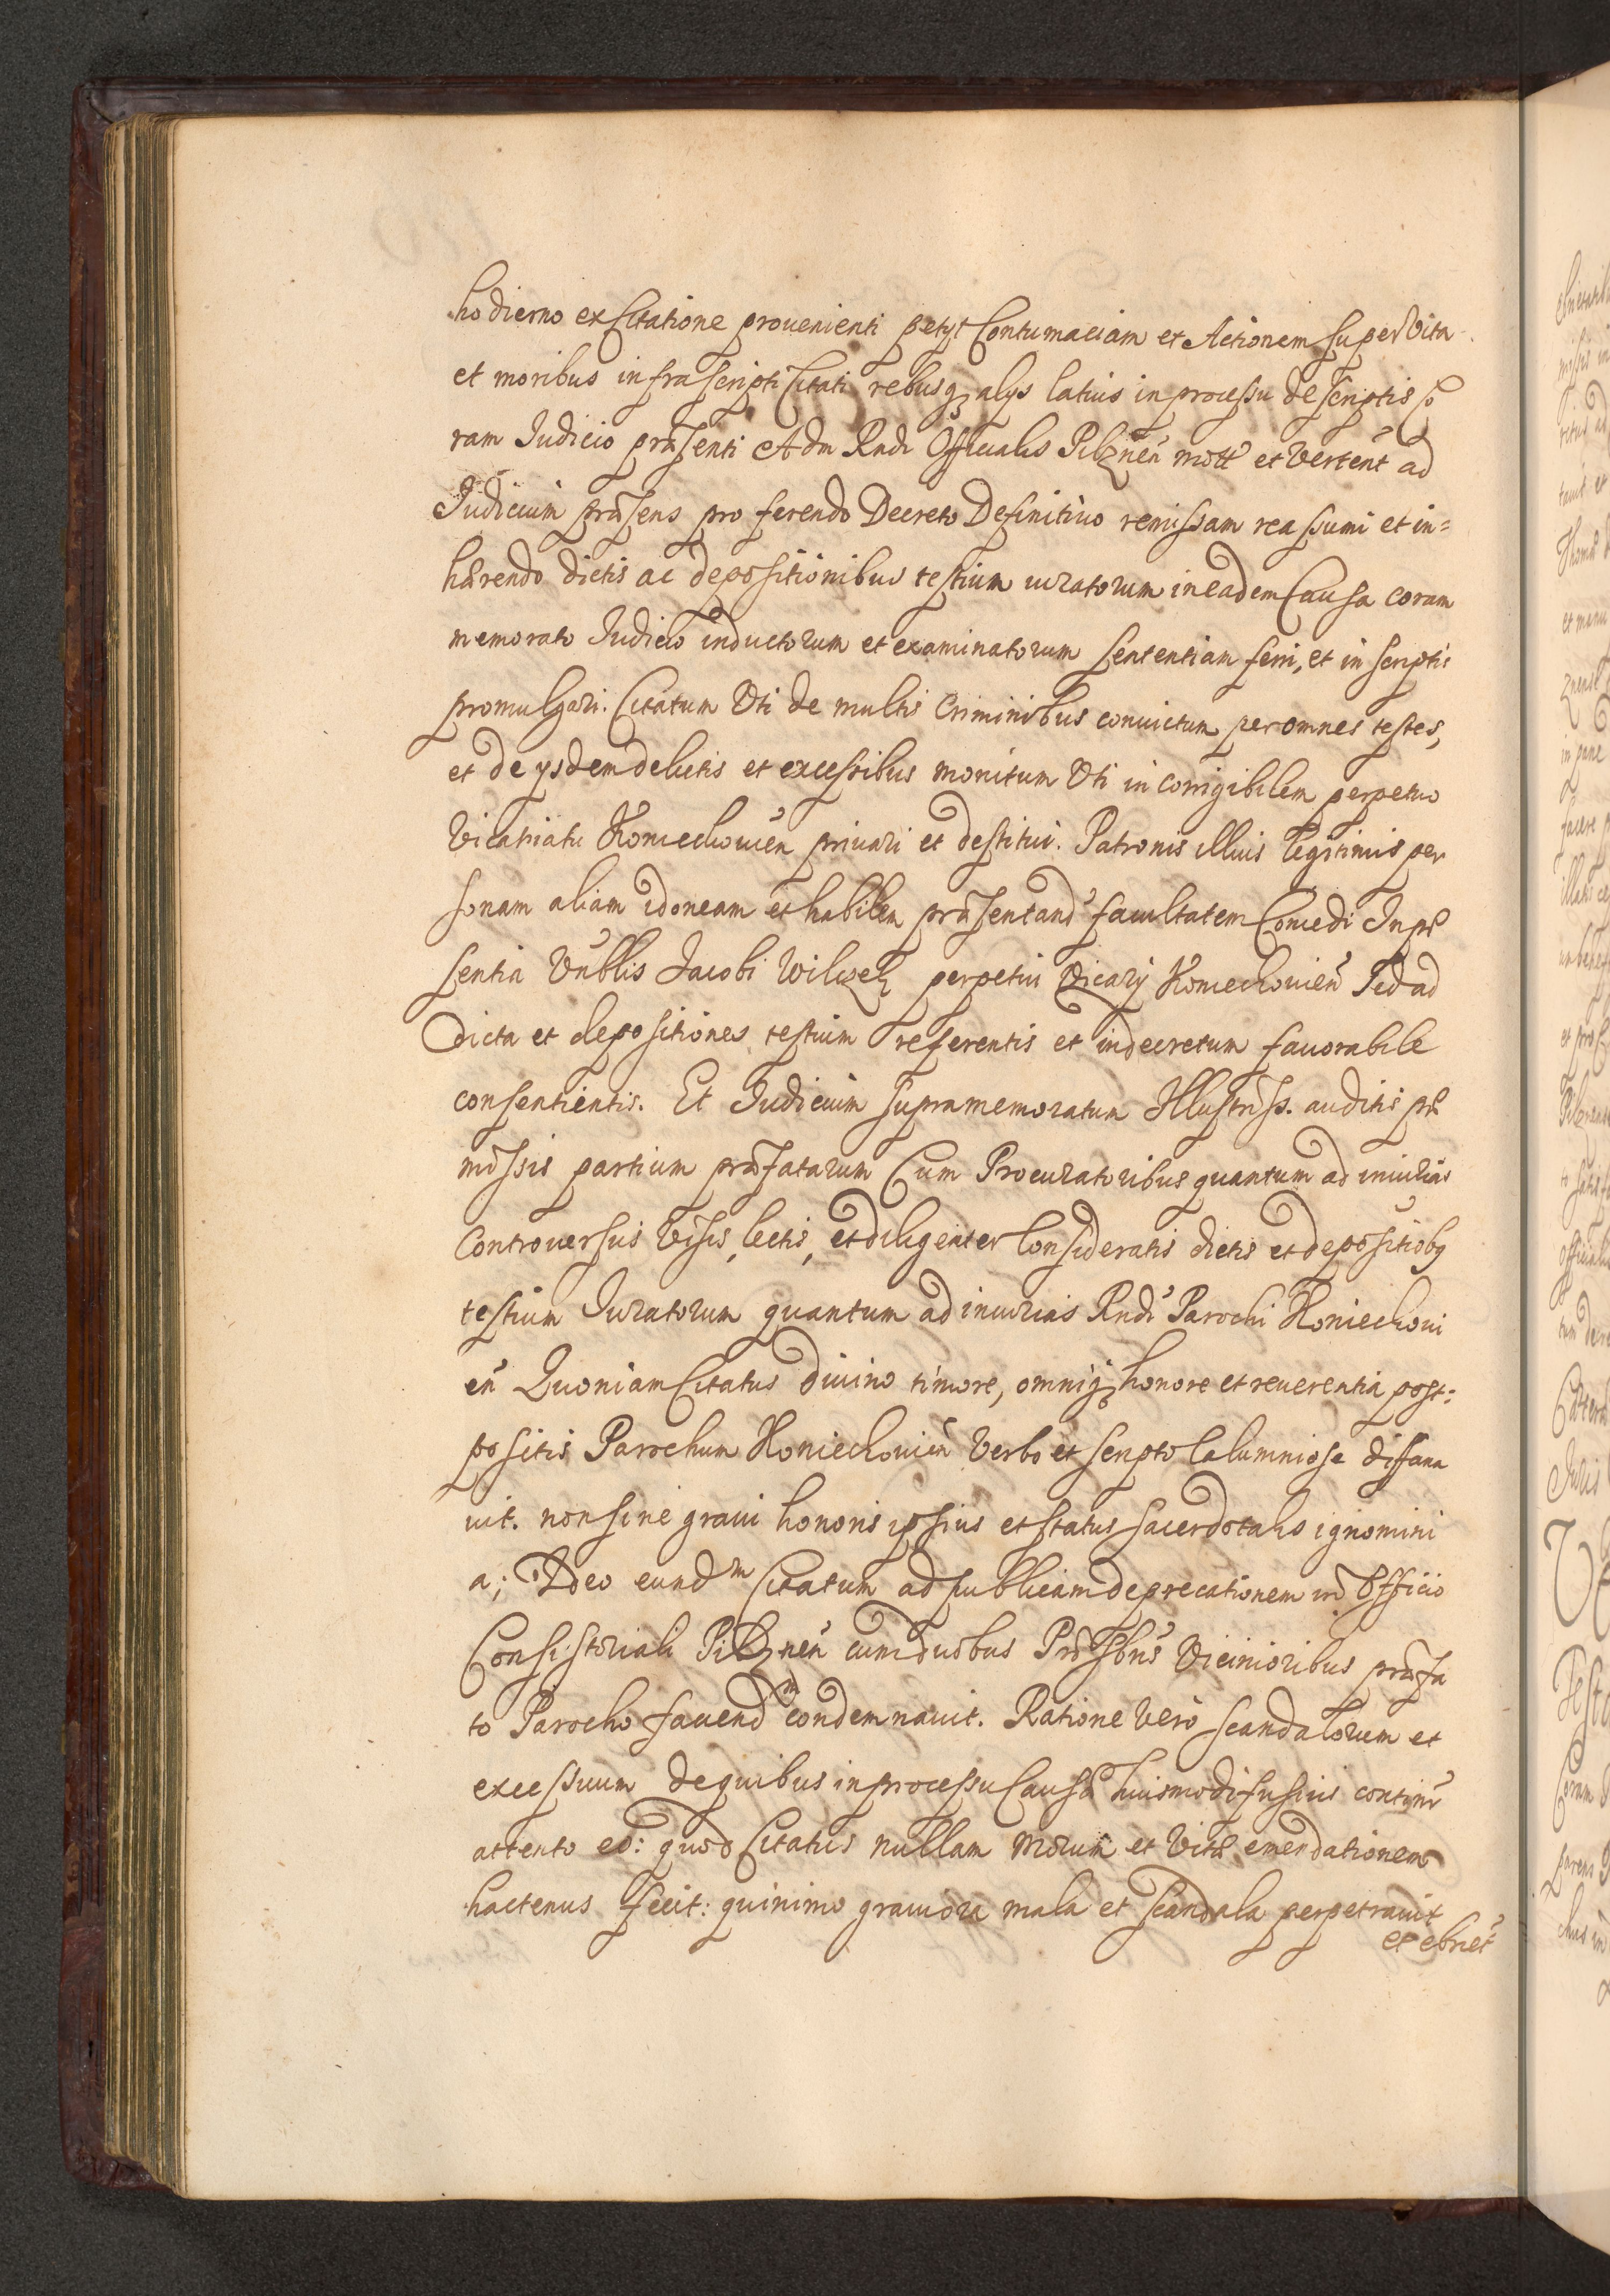 hodierno ex Citatione prouenienti petyt Contumaciam et Actionem super Vita
et moribus infrascripti Citati rebusq alys latius in processu descriptis Co
ram Iudicio præsenti Adm Rndi Officialis Pilznen mott et vertent ad
Iudicium præsens pro ferendo Decreto Definitiuo remissam reassumi et in=
hærendo dictis ac depositionibus testium iuratorum in eadem Causa coram
memorato Iudicio inductorum et examinatorum sententiam ferri, et in scriptis
promulgari. Citatum Vti de multis Criminibus conuictum per omnes testes,
et de ysdem delictis et excessibus monitum Vti incorrigibilem perpetuo
Vicariatu Koniechouien priuari et destitui. Patronis illius legitimis per
sonam aliam idoneam et habilem præsentand facultatem Concedi In præ
sentia Vnblis Iacobi Wilczek perpetui Vicarij Koniechouien se ad
dicta et depositiones testium referentis et in decretum fauorabile
consentientis. Et Iudicium supramemoratum Illustriss. auditis præ
missis partium præfatarum Cum Procuratoribus quantum ad iniurias
Controuersus Visis, lectis, et diligenter Consideratis dictis et depositiobq
testium Iuratorum quantum ad iniurias Rndi Parochi Koniechoui
en Quoniam Citatus diuino timore, omniq honore et reuerentia post=
positis Parochum Koniechouien Verbo et scripto Calumniose diffama
uit. non sine graui honoris ipsius et status sacerdotalis ignomini
a; Ideo eundm Citatum ad publicam deprecationem in Officio
Consistoriali Pilznen cum duobus Præsbris Vicinioribus præfa
to Parocho faciendm condemnauit. Ratione Vero scandalorum et
excessuum de quibus in processu Causæ huiusmodi fusius continr
attento eo: quod Citatus nullam Morum et Vitæ emendationem
hactenus fecit: quinimo grauiora mala et scandala perpetrauit
et ebriet